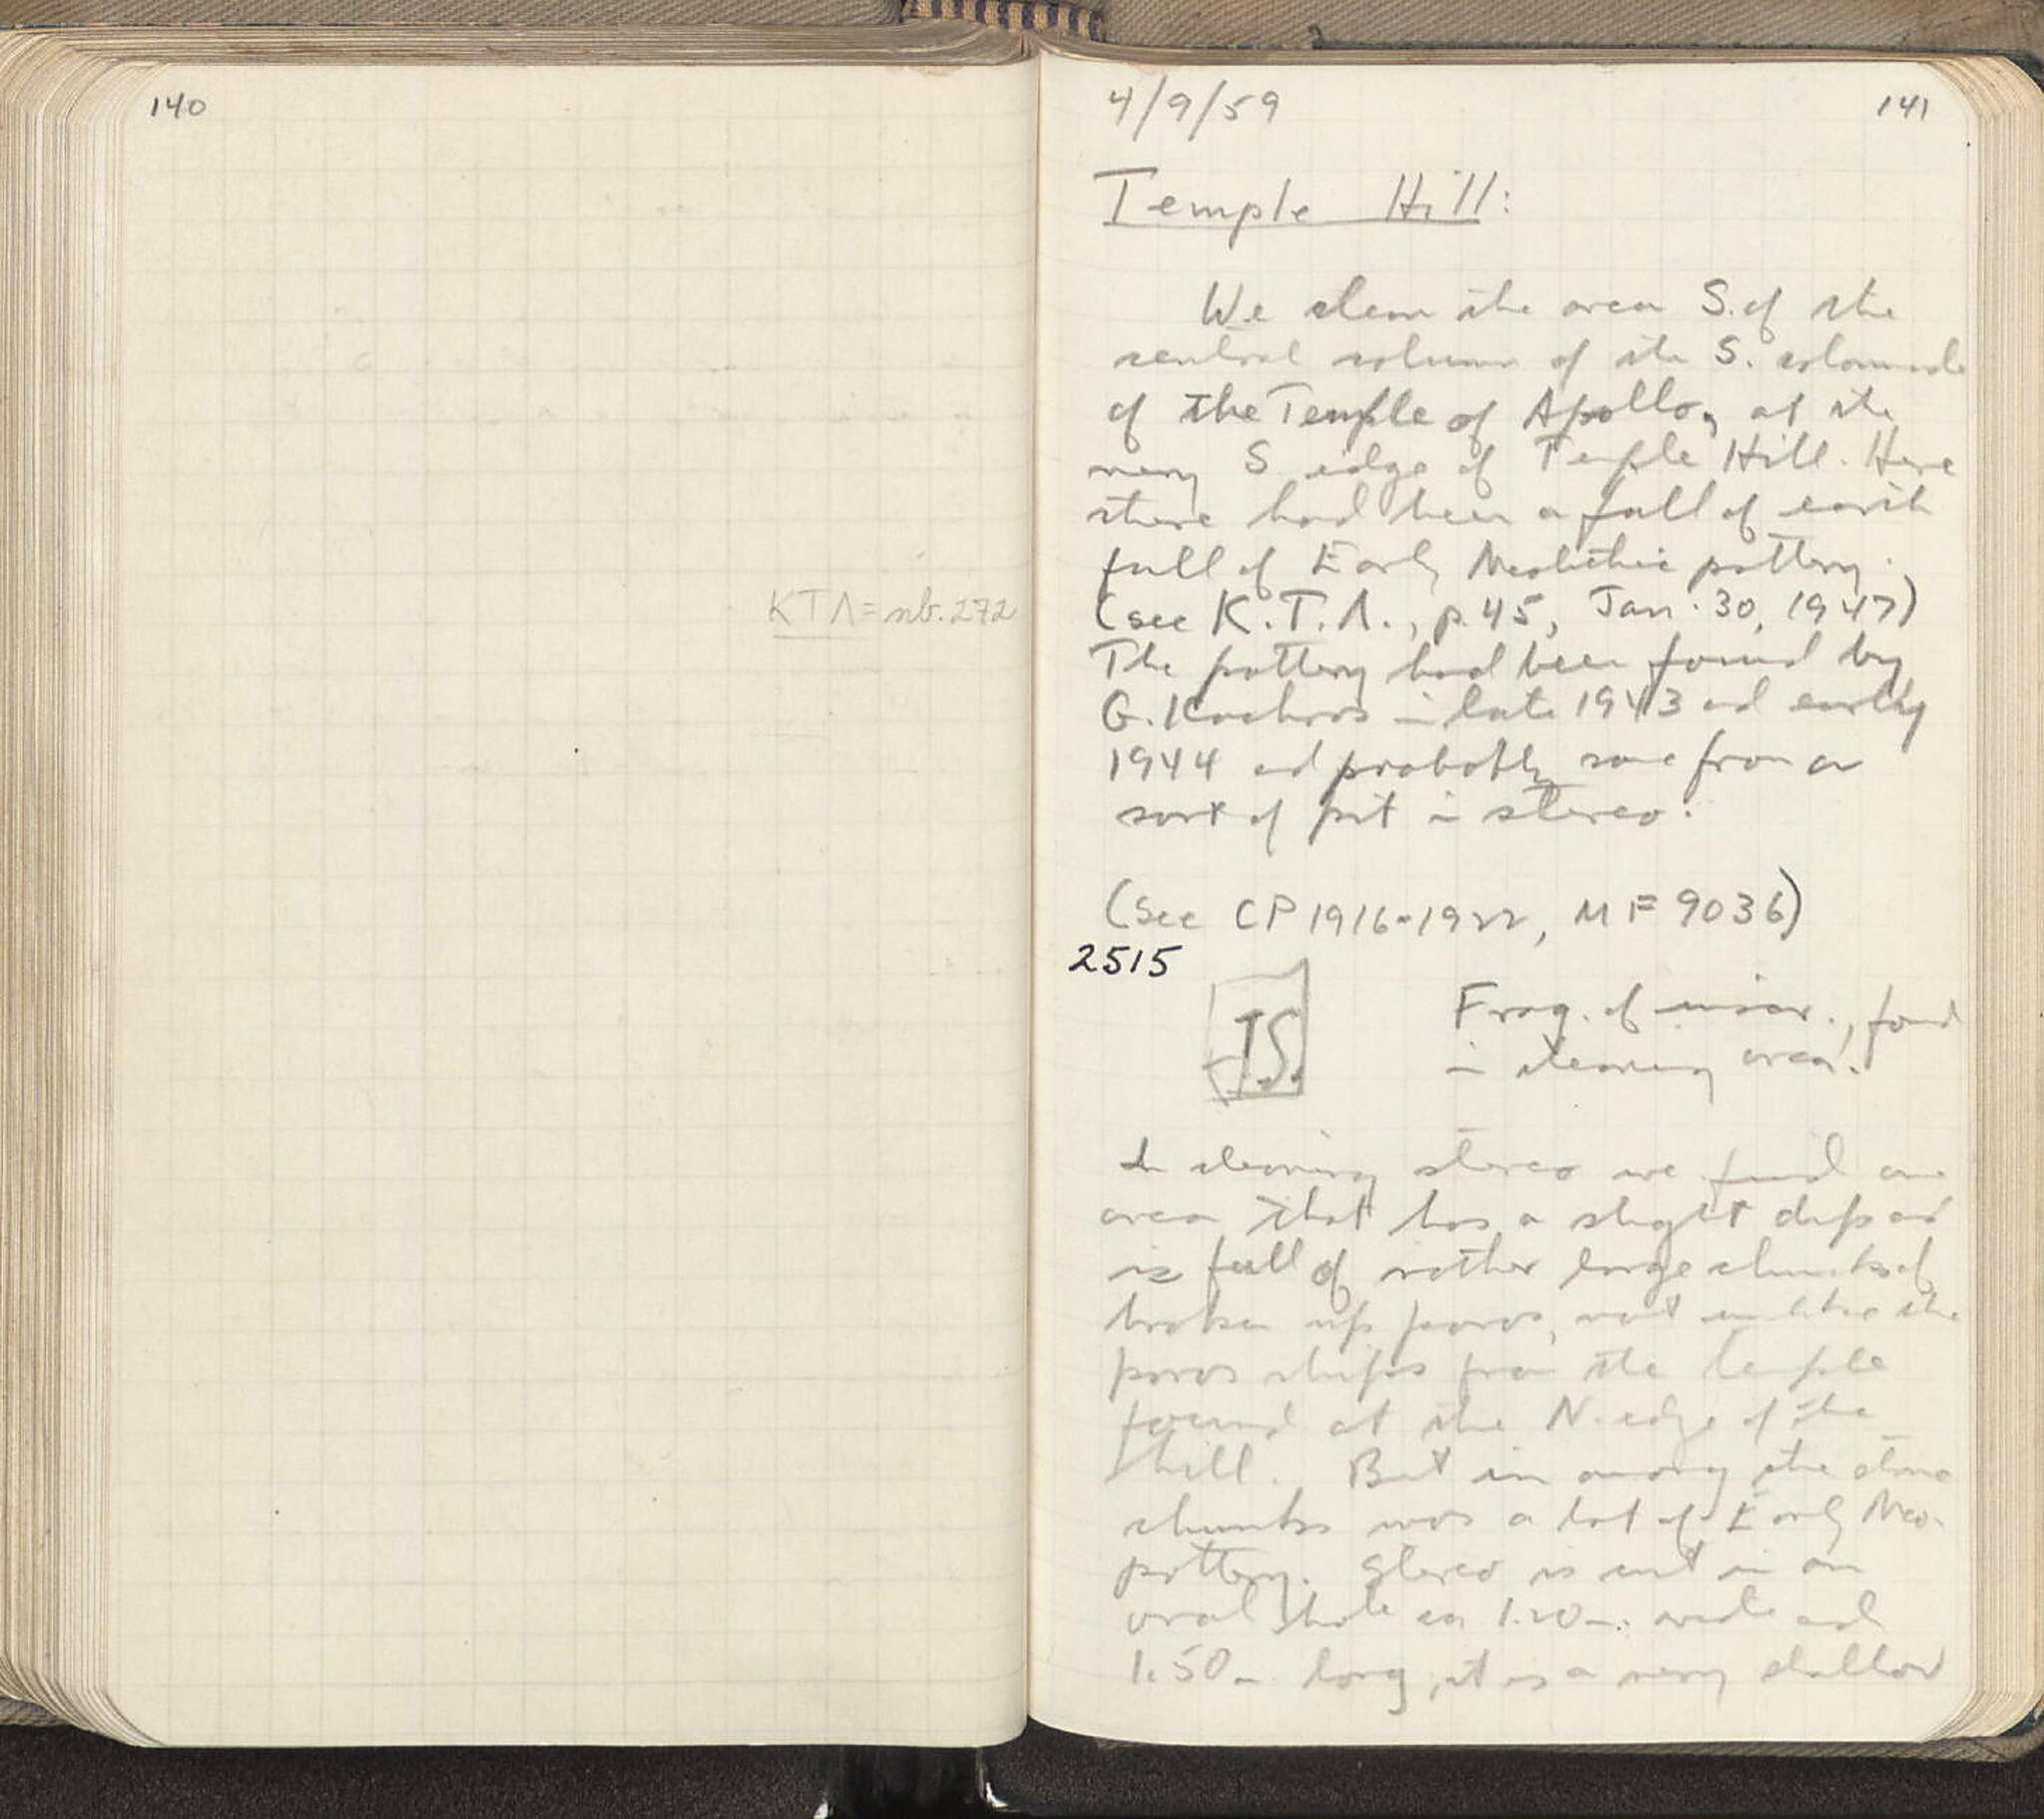 140
KTΛ = nb. 272
4/9/59
141
Temple Hill:
We clean the area S. of the
central column of the S. colonnade
of the Temple of Apollo, at the
very S edge of Temple Hill. Here
there had been a fall of earth
full of Early Neolithic pottery.
(see K.T.Λ., p. 45, Jan. 30, 1947)
The pottery had been found by
G. Kachros in late 1943 and early
1944 and probably came from a
sort of pit in stereo.
(see CP 1916-1922, MF 9036)
2515
I.S.
Frag. of inscr., found
in cleaning area.
In cleaning stereo we find an
area that has a slight dip and
is full of rather large chunks of
broken up poros, not unlike the
poros chips from the temple
found at the N. edge of the
hill. But in among the stone
chunks was a lot of Early Neo.
pottery. Stereo is cut in an
oval hole ca 1.20m. wide and
1.50m long, it is a very shallow